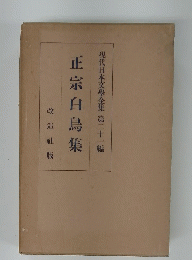 現代日本文學全集 第二十一編
正宗白鳥集
改造社版